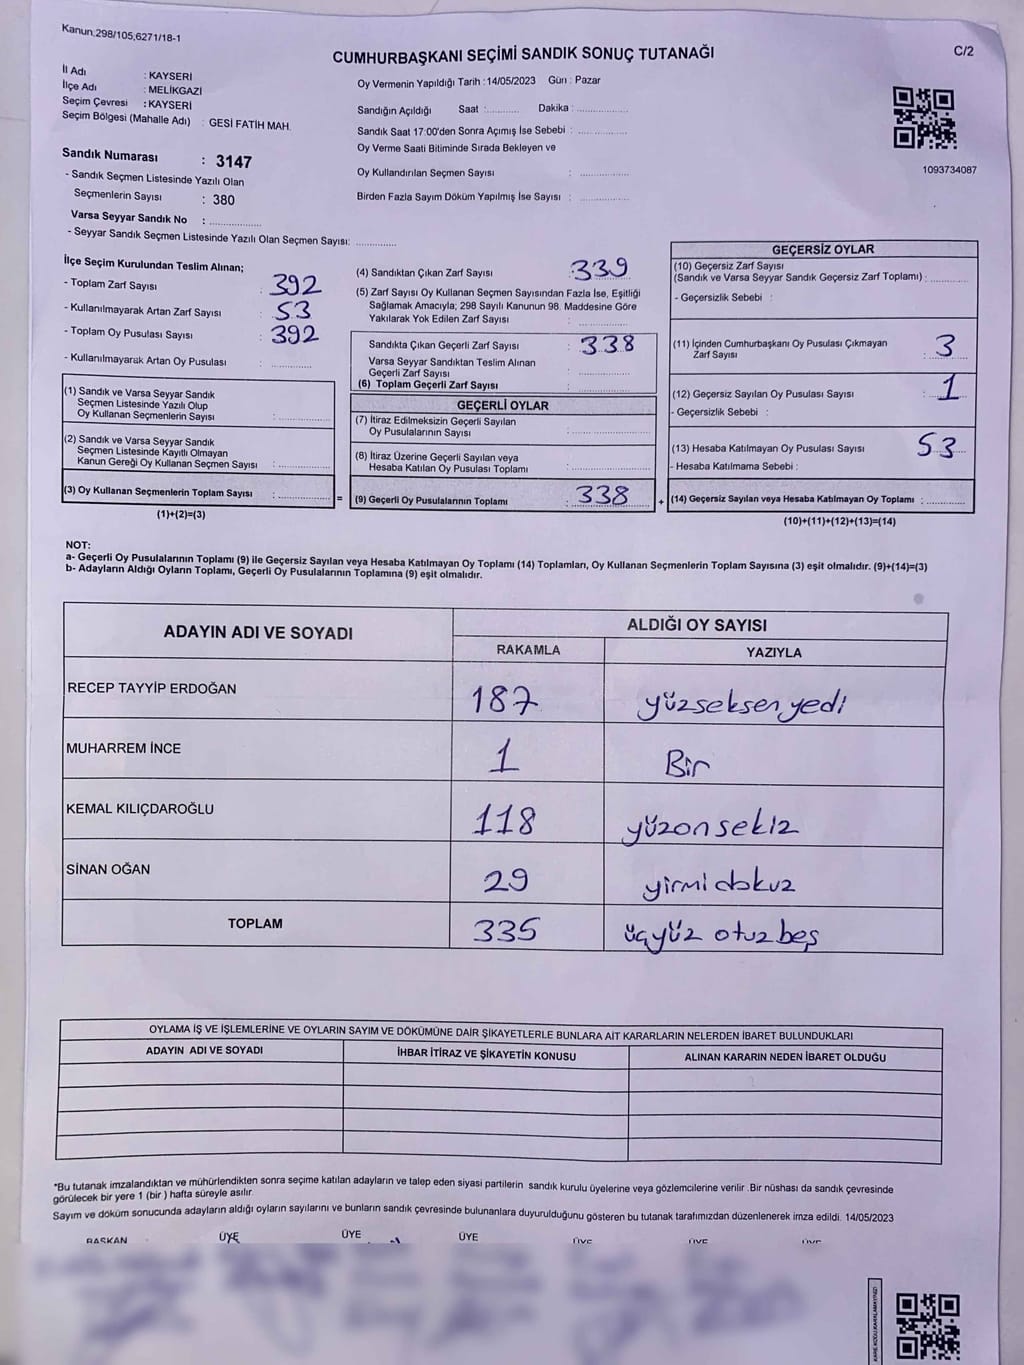 Kanun,298/105,6271/18-1
CUMHURBAŞKANI SEÇİMİ SANDIK SONUÇ TUTANAĞI
C/2
İl Adı : KAYSERİ
İlçe Adı : MELİKGAZİ
Seçim Çevresi : KAYSERİ
Seçim Bölgesi (Mahalle Adı) : GESİ FATİH MAH.
Sandık Numarası : 3147
- Sandık Seçmen Listesinde Yazılı Olan
Seçmenlerin Sayısı : 380
Varsa Seyyar Sandık No : ................
- Seyyar Sandık Seçmen Listesinde Yazılı Olan Seçmen Sayısı: ............
Oy Vermenin Yapıldığı Tarih :14/05/2023 Gün : Pazar
Sandığın Açıldığı Saat :........... Dakika : ................
Sandık Saat 17:00'den Sonra Açımış İse Sebebi : ................
Oy Verme Saati Bitiminde Sırada Bekleyen ve
Oy Kullandırılan Seçmen Sayısı : ................
Birden Fazla Sayım Döküm Yapılmış İse Sayısı : ................
1093734087
İlçe Seçim Kurulundan Teslim Alınan;
- Toplam Zarf Sayısı : 392
- Kullanılmayarak Artan Zarf Sayısı : 53
- Toplam Oy Pusulası Sayısı : 392
- Kullanılmayarak Artan Oy Pusulası : ............
(1) Sandık ve Varsa Seyyar Sandık
Seçmen Listesinde Yazılı Olup
Oy Kullanan Seçmenlerin Sayısı : ................
(2) Sandık ve Varsa Seyyar Sandık
Seçmen Listesinde Kayıtlı Olmayan
Kanun Gereği Oy Kullanan Seçmen Sayısı : ................
(3) Oy Kullanan Seçmenlerin Toplam Sayısı : ................ =
(1)+(2)=(3)
(4) Sandıktan Çıkan Zarf Sayısı : 339
(5) Zarf Sayısı Oy Kullanan Seçmen Sayısından Fazla İse, Eşitliği
Sağlamak Amacıyla; 298 Sayılı Kanunun 98. Maddesine Göre
Yakılarak Yok Edilen Zarf Sayısı : ................
Sandıkta Çıkan Geçerli Zarf Sayısı : 338
Varsa Seyyar Sandıktan Teslim Alınan
Geçerli Zarf Sayısı : ................
(6) Toplam Geçerli Zarf Sayısı : ................
GEÇERLİ OYLAR
(7) İtiraz Edilmeksizin Geçerli Sayılan
Oy Pusulalarının Sayısı : ................
(8) İtiraz Üzerine Geçerli Sayılan veya
Hesaba Katılan Oy Pusulası Toplamı : ................
(9) Geçerli Oy Pusulalarının Toplamı : 338 +
GEÇERSİZ OYLAR
(10) Geçersiz Zarf Sayısı
(Sandık ve Varsa Seyyar Sandık Geçersiz Zarf Toplamı) : ............
- Geçersizlik Sebebi :
(11) İçinden Cumhurbaşkanı Oy Pusulası Çıkmayan
Zarf Sayısı : 3
(12) Geçersiz Sayılan Oy Pusulası Sayısı : 1
- Geçersizlik Sebebi :
(13) Hesaba Katılmayan Oy Pusulası Sayısı : 53
- Hesaba Katılmama Sebebi :
(14) Geçersiz Sayılan veya Hesaba Katılmayan Oy Toplamı : ............
(10)+(11)+(12)+(13)=(14)
NOT:
a- Geçerli Oy Pusulalarının Toplamı (9) ile Geçersiz Sayılan veya Hesaba Katılmayan Oy Toplamı (14) Toplamları, Oy Kullanan Seçmenlerin Toplam Sayısına (3) eşit olmalıdır. (9)+(14)=(3)
b- Adayların Aldığı Oyların Toplamı, Geçerli Oy Pusulalarının Toplamına (9) eşit olmalıdır.
ADAYIN ADI VE SOYADI ALDIĞI OY SAYISI
RAKAMLA YAZIYLA
RECEP TAYYİP ERDOĞAN 187 yüzseksenyedi
MUHARREM İNCE 1 Bir
KEMAL KILIÇDAROĞLU 118 yüzonsekiz
SİNAN OĞAN 29 yirmidokuz
TOPLAM 335 üçyüz otuzbeş
OYLAMA İŞ VE İŞLEMLERİNE VE OYLARIN SAYIM VE DÖKÜMÜNE DAİR ŞİKAYETLERLE BUNLARA AİT KARARLARIN NELERDEN İBARET BULUNDUKLARI
ADAYIN ADI VE SOYADI İHBAR İTİRAZ VE ŞİKAYETİN KONUSU ALINAN KARARIN NEDEN İBARET OLDUĞU
*Bu tutanak imzalandıktan ve mühürlendikten sonra seçime katılan adayların ve talep eden siyasi partilerin sandık kurulu üyelerine veya gözlemcilerine verilir .Bir nüshası da sandık çevresinde
görülecek bir yere 1 (bir ) hafta süreyle asılır.
Sayım ve döküm sonucunda adayların aldığı oyların sayılarını ve bunların sandık çevresinde bulunanlara duyurulduğunu gösteren bu tutanak tarafımızdan düzenlenerek imza edildi. 14/05/2023
BAŞKAN ÜYE ÜYE ÜYE ÜYE ÜYE ÜYE